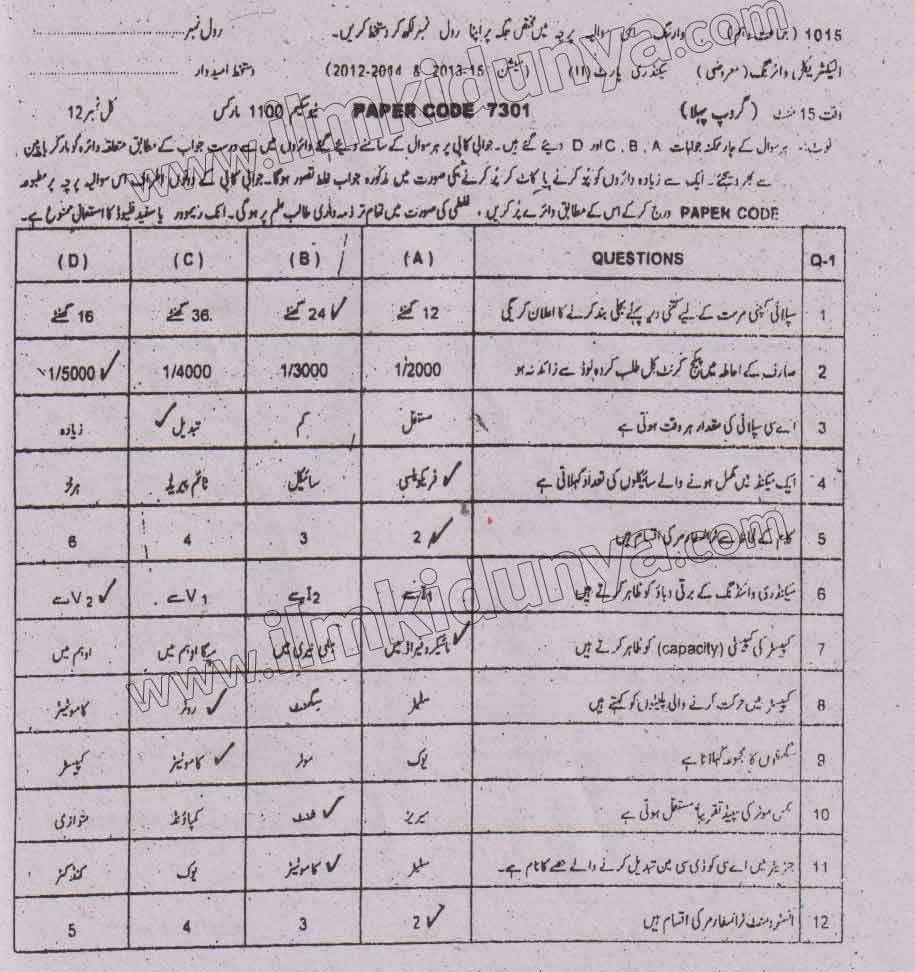 1015 (جماعت دہم) وارننگ۔ اس سوالیہ پرچہ میں مختص جگہ پر اپنا رول نمبر لکھ کر دستخط کریں۔ رول نمبر
الیکٹریکل وائرنگ (معروضی) سیکنڈری پارٹ (II) (سیشن 2013-15 & 2012-2014) دستخط امیدوار
وقت 15 منٹ (گروپ پہلا) PAPER CODE 7301 نیو سکیم 1100 مارکس کل نمبر 12
نوٹ:۔ ہر سوال کے چار ممکنہ جوابات A ,B ,C اور D دیئے گئے ہیں۔ جوابی کاپی پر ہر سوال کے سامنے دیئے گئے دائروں میں سے درست جواب کے مطابق متعلقہ دائرہ کو مارکر یا پین
سے بھر دیجئے۔ ایک سے زیادہ دائروں کو پُر کرنے یا کاٹ کر پُر کرنے کی صورت میں مذکورہ جواب غلط تصور ہوگا۔ جوابی کاپی کے دونوں اطراف اس سوالیہ پرچہ پر مطبوعہ
PAPER CODE درج کر کے اس کے مطابق دائرے پُر کریں، غلطی کی صورت میں تمام تر ذمہ داری طالب علم پر ہوگی۔ انک ریموور یا سفید فلیوڈ کا استعمال ممنوع ہے۔
Q-1 QUESTIONS (A) (B) (C) (D)
1 سپلائی کمپنی مرمت کے لیے کتنی دیر پہلے بجلی بند کرنے کا اعلان کریگی 12 گھنٹے 24 گھنٹے 36 گھنٹے 16 گھنٹے
2 صارف کے احاطہ میں لیکج کرنٹ کل طلب کردہ لوڈ سے زائد نہ ہو 1/2000 1/3000 1/4000 1/5000
3 اے سی سپلائی کی مقدار ہر وقت ہوتی ہے مستقل کم تبدیل زیادہ
4 ایک سیکنڈ میں مکمل ہونے والے سائیکلوں کی تعداد کہلاتی ہے فریکوئنسی سائیکل ٹائم پیریڈ ہرٹز
5 کام کے لحاظ سے ٹرانسفارمر کی اقسام ہیں 2 3 4 6
6 سیکنڈری وائنڈنگ کے برقی دباؤ کو ظاہر کرتے ہیں I1 سے I2 سے V1 سے V2 سے
7 کپسٹر کی کپیسٹی (capacity) کو ظاہر کرتے ہیں مائیکروفیراڈ میں ملی ہنری میں میگا اوہم میں اوہم میں
8 کپسٹر میں حرکت کرنے والی پلیٹوں کو کہتے ہیں سٹیٹر میگنٹ روٹر کاموٹیٹر
9 سگمنٹوں کا مجموعہ کہلاتا ہے یوک موٹر کاموٹیٹر کپسٹر
10 کس موٹر کی سپیڈ تقریباً مستقل ہوتی ہے سیریز شنٹ کمپاؤنڈ متوازی
11 جنریٹر میں اے سی کو ڈی سی میں تبدیل کرنے والے حصے کا نام ہے۔ سٹیٹر کاموٹیٹر یوک کنڈکٹر
12 انسٹرومنٹ ٹرانسفارمر کی اقسام ہیں 2 3 4 5
www.ilmkidunya.com
www.ilmkidunya.com